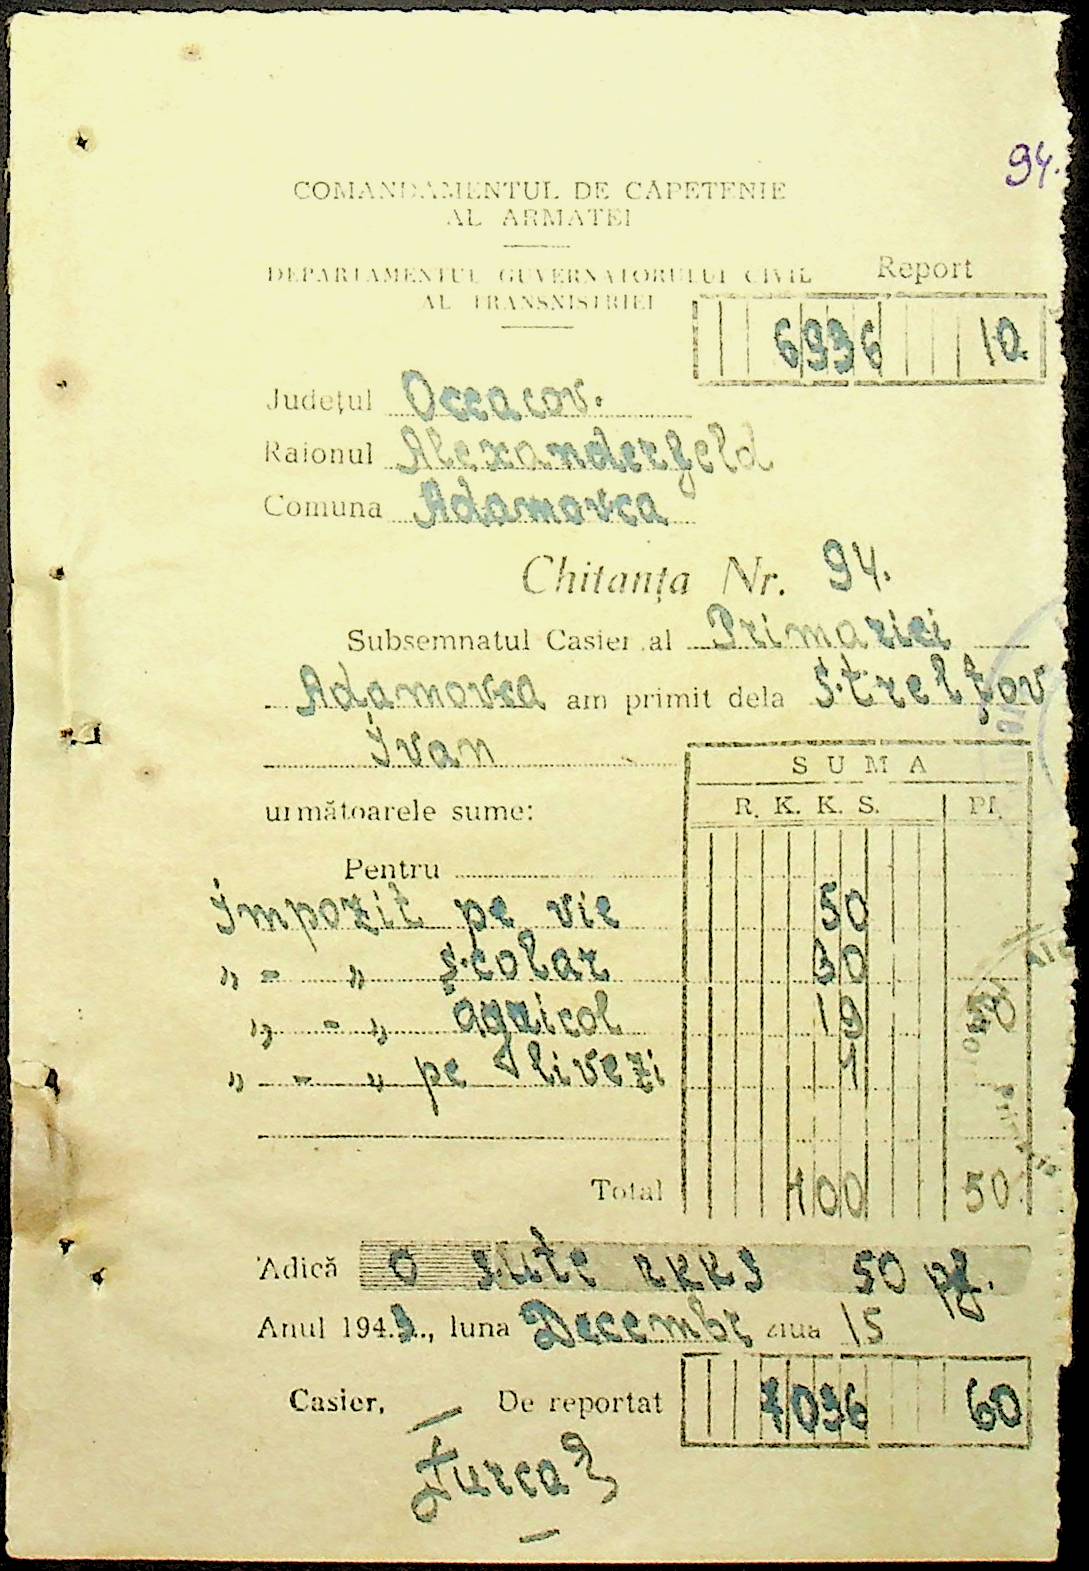 94.
COMANDAMENTUL DE CĂPETENIE
AL ARMATEI
DEPARTAMENTUL GUVERNATORULUI CIVIL
AL TRANSNISTRIEI
Report
6936 10.
Județul Oceacov.
Raionul Alexanderfeld
Comuna Adamovca
Chitanța Nr. 94.
Subsemnatul Casier al Primariei
Adamovca am primit dela Strelțov
Ivan
SUMA
următoarele sume: R. K. K. S. Pf.
Pentru
Impozit pe vie 50
" = " școlar
" - " agricol 19 50
" - " pe livezi 1
Total 100 50.
Adică o sute rkks 50 pf.
Anul 194, luna Decembr ziua 15
Casier, De reportat 7036 60